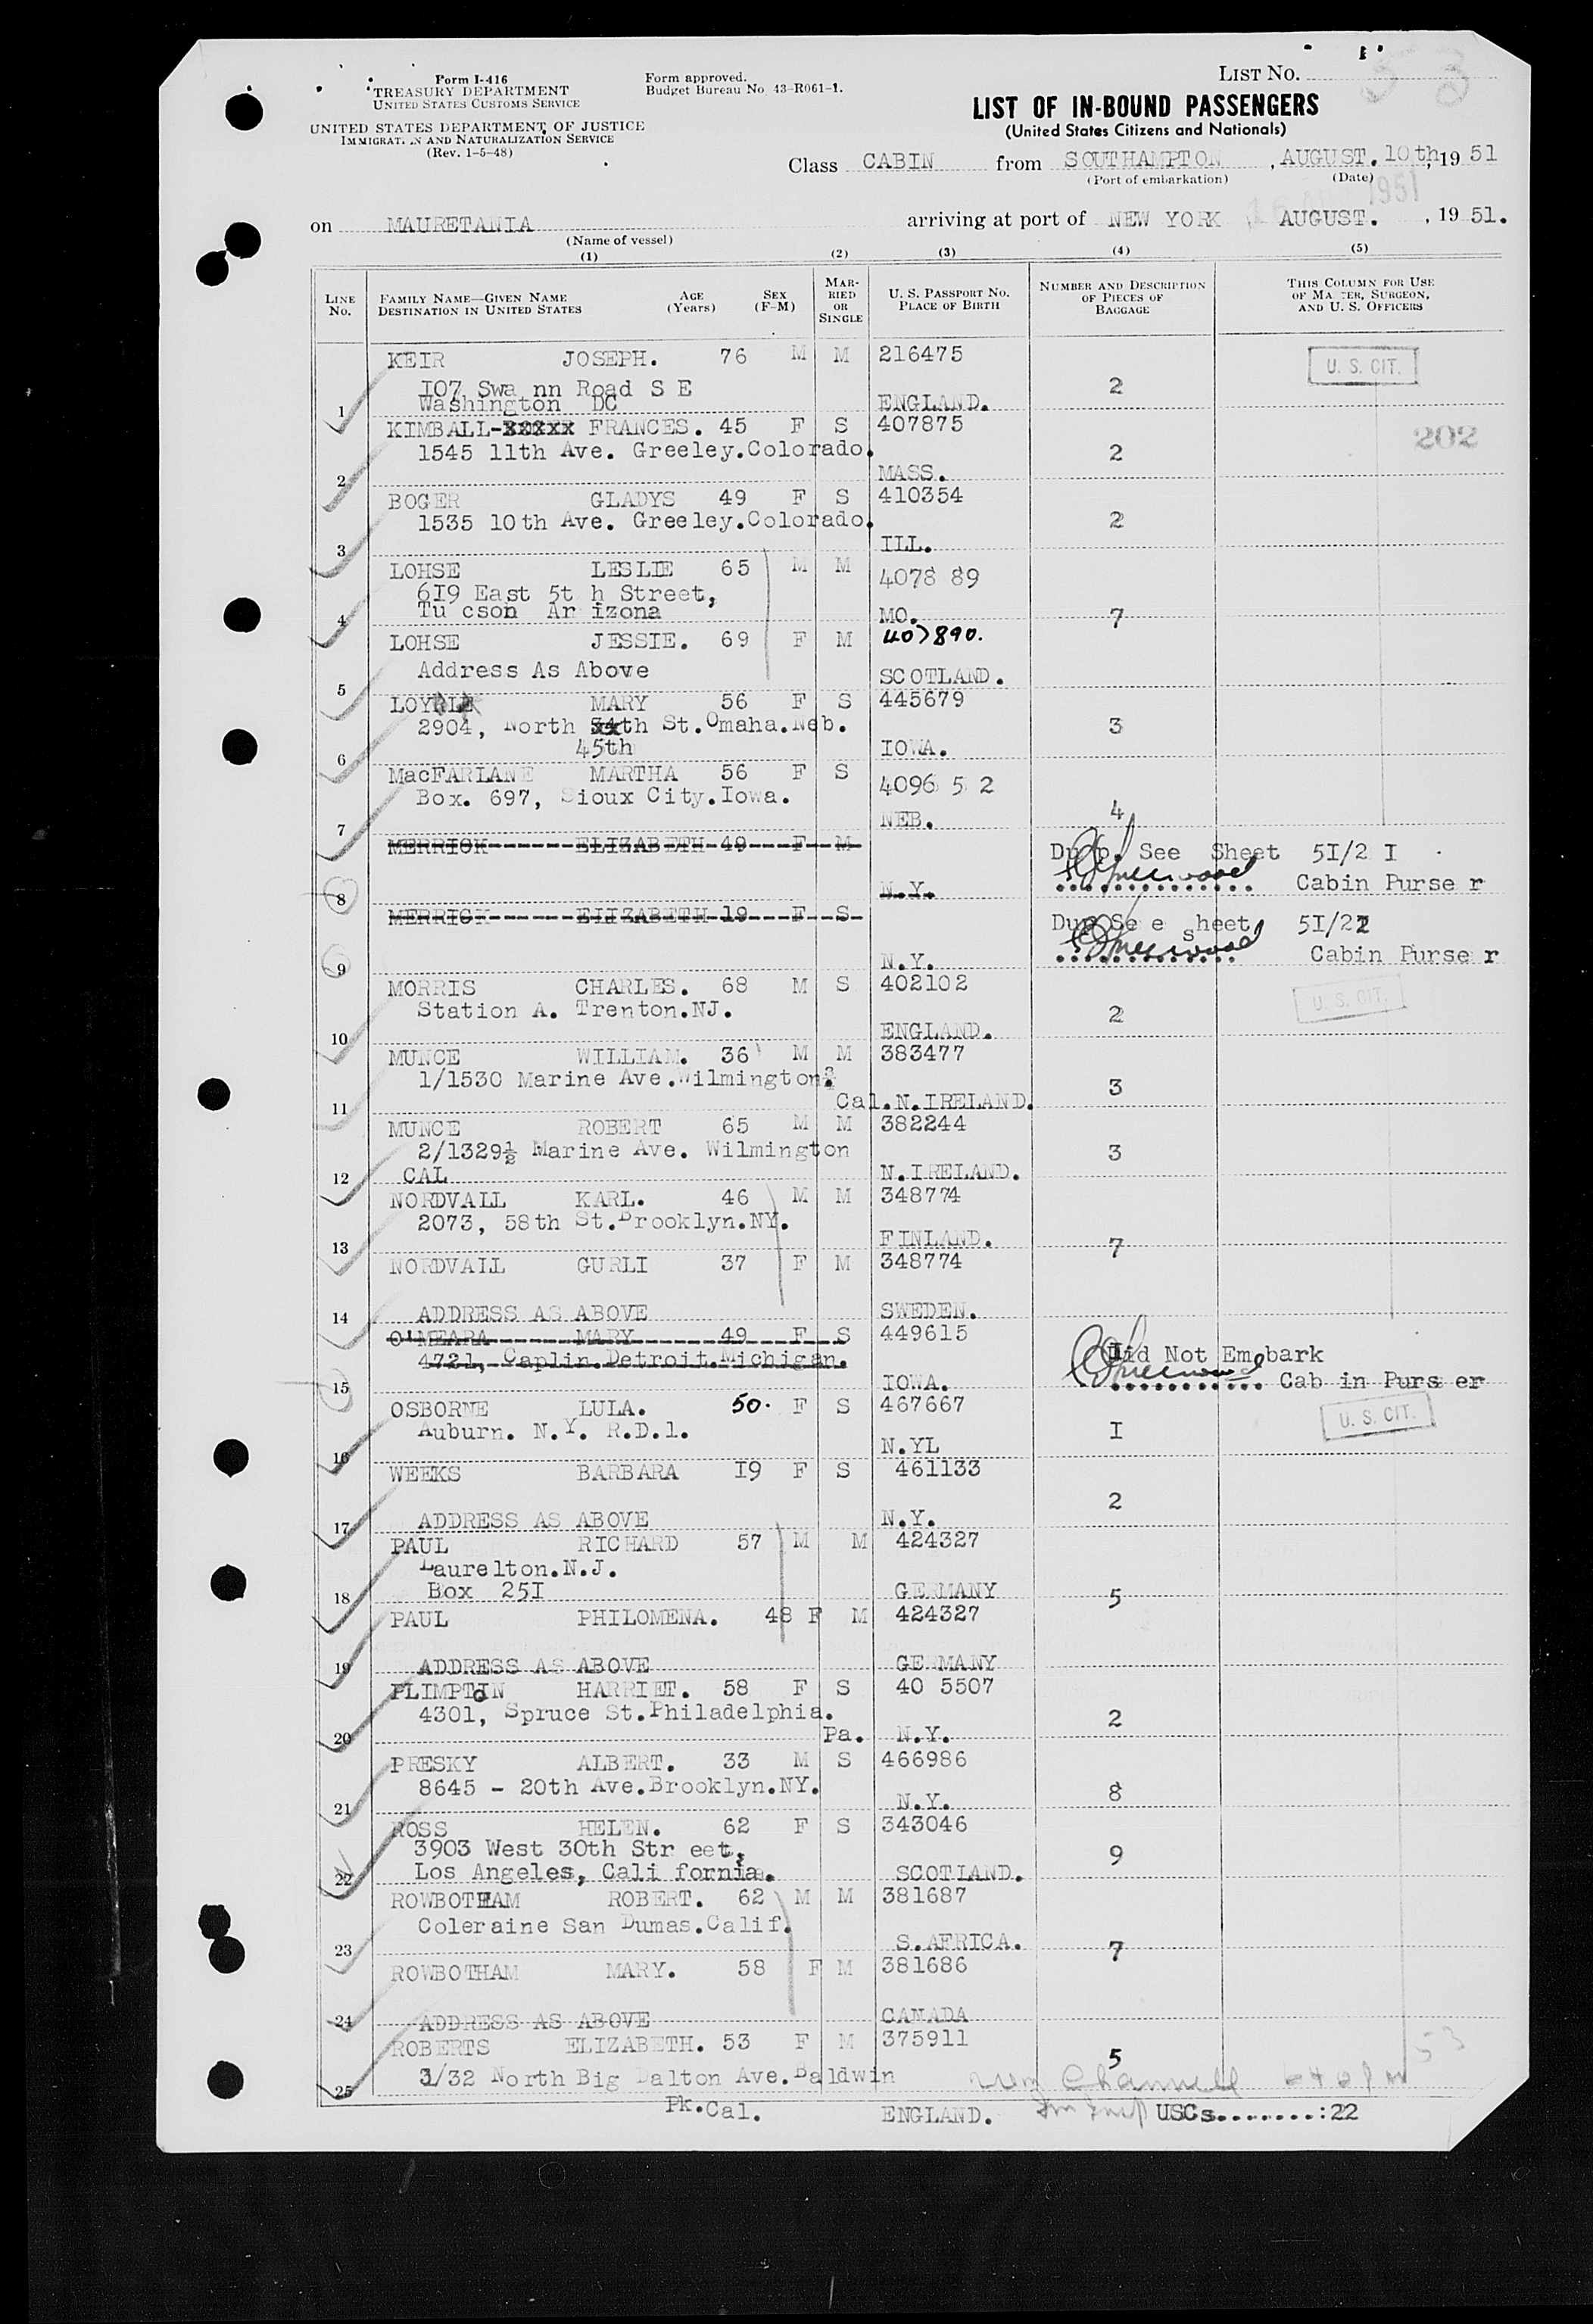 Form I-416
TREASURY DEPARTMENT
UNITED STATES CUSTOMS SERVICE
UNITED STATES DEPARTMENT OF JUSTICE
IMMIGRAT. .N AND NATURALIZATION SERVICE
(Rev. 1-5-48)
Form approved.
Budget Bureau No. 43-R061-1.
LIST No. 53
LIST OF IN-BOUND PASSENGERS
(United States Citizens and Nationals)
Class CABIN from SOUTHAMPTON, AUGUST. 10th, 19 51
(Port of embarkation) (Date)
on MAURETANIA arriving at port of NEW YORK AUGUST. , 19 51.
(Name of vessel)
(1) (2) (3) (4) (5)
LINE No. FAMILY NAME—GIVEN NAME DESTINATION IN UNITED STATES AGE (Years) SEX (F-M) MARRIED OR SINGLE U. S. PASSPORT NO. PLACE OF BIRTH NUMBER AND DESCRIPTION OF PIECES OF BAGGAGE THIS COLUMN FOR USE OF MA TER, SURGEON, AND U. S. OFFICERS
KEIR JOSEPH. 76 M M 216475 U. S. CIT.
107 Swa nn Road S E 2
1 Washington DC ENGLAND.
KIMBALL- FRANCES. 45 F S 407875 202
1545 11th Ave. Greeley.Colorado. 2
2 MASS.
BOGER GLADYS 49 F S 410354
1535 10th Ave. Greeley.Colorado. 2
3 ILL.
LOHSE LESLIE 65 M M 4078 89
619 East 5t h Street,
4 Tu cson Ar izona MO. 7
LOHSE JESSIE. 69 F M 407890.
Address As Above
5 SCOTLAND.
LOY MARY 56 F S 445679
2904, North 34th St.Omaha.Neb. 3
6 45th IOWA.
MacFARLANE MARTHA 56 F S 4096 5 2
Box. 697, Sioux City.Iowa.
7 NEB. 4
MERRICK------ELIZABETH-49---F--M- Dup. See Sheet 51/2 I
8 N.Y. Cabin Purse r
MERRICK------ELIZABETH-19---F--S- Dup Se e Sheet 51/22
9 N.Y. Cabin Purse r
MORRIS CHARLES. 68 M S 402102 U. S. CIT.
Station A. Trenton.NJ. 2
10 ENGLAND.
MUNCE WILLIAM. 36 M M 383477
1/1530 Marine Ave.Wilmington. 3
11 Cal.N.IRELAND.
MUNCE ROBERT 65 M M 382244
2/1329½ Marine Ave. Wilmington 3
12 CAL N.IRELAND.
NORDVALL KARL. 46 M M 348774
2073, 58th St.Brooklyn.NY.
13 FINLAND. 7
NORDVALL GURLI 37 F M 348774
14 ADDRESS AS ABOVE SWEDEN.
O'MEARA MARY 49 F S 449615
4721, Caplin.Detroit.Michigan. Did Not Embark
15 IOWA. Cab in Purs er
OSBORNE LULA. 50. F S 467667 U. S. CIT.
Auburn. N.Y. R.D.1. I
16 N.YL
WEEKS BARBARA I9 F S 461133
2
17 ADDRESS AS ABOVE N.Y.
PAUL RICHARD 57 M M 424327
Laurelton.N.J.
18 Box 25I GERMANY 5
PAUL PHILOMENA. 48 F M 424327
19 ADDRESS AS ABOVE GERMANY
PLIMPTON HARRIET. 58 F S 40 5507
4301, Spruce St.Philadelphia. 2
20 Pa. N.Y.
PRESKY ALBERT. 33 M S 466986
8645 - 20th Ave.Brooklyn.NY. 8
21 N.Y.
ROSS HELEN. 62 F S 343046
3903 West 30th Str eet, 9
22 Los Angeles, Cali fornia. SCOTLAND.
ROWBOTHAM ROBERT. 62 M M 381687
Coleraine San Dumas.Calif.
23 S.AFRICA. 7
ROWBOTHAM MARY. 58 F M 381686
24 ADDRESS AS ABOVE CANADA
ROBERTS ELIZABETH. 53 F M 375911
25 3/32 North Big Dalton Ave.Baldwin 5 53
Pk.Cal. ENGLAND. USCs........:22